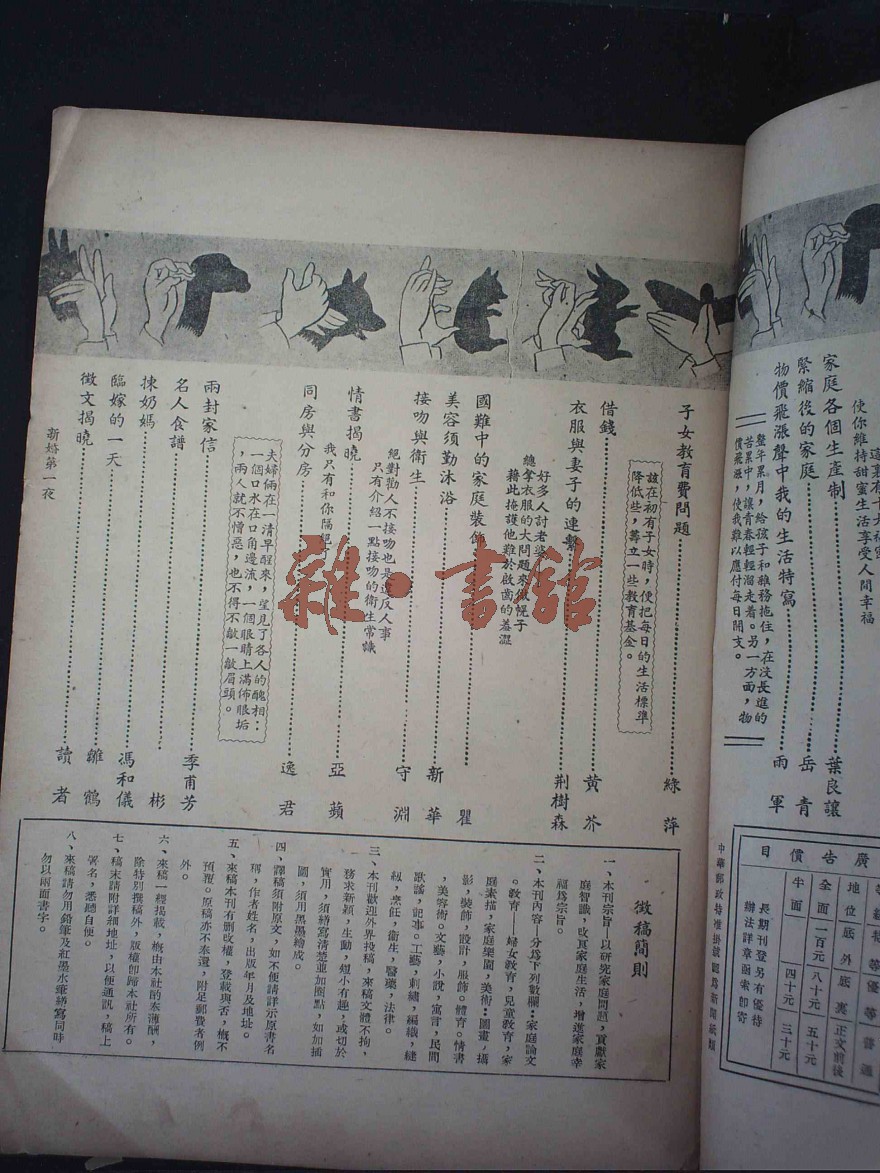 使你維持甜蜜生活享受人間幸福
家庭各個生產制
葉良讓
緊縮後的家庭
岳青
物價飛漲聲中我的生活特寫
雨軍
整年累月，給孩子和雜務拖住，在沒長進的
苦累中，讓青春輕輕溜走着。另一方面，物
價飛漲，使我難以應付每日開支。
廣告價目
等級特等優等普通
地位底外底裏正文前後
全面一百元八十元五十元
半面四十元三十元
長期刊登另有優待
辦法詳章函索卽寄
中華郵政特准掛號認爲新聞紙類
子女教育費問題
綠萍
該在初有子女時，便把每日的生活標準
降低些，籌立一些教育基金。
借錢
黄芥
衣服與妻子的連繫
荆樹森
好多人討老婆
總拿衣服的大問題來做幌子
藉此掩護他難於啟齒的羞澀
國難中的家庭裝飾
瞿
美容須勤沐浴
新華
接吻與衛生
守淵
絕對勸人不接吻也是違反人事
只有介紹一點接吻的衛生常識
情書揭曉
亞蘋
我只有和你隔絕
同房與分房
逸君
夫婦倆在一清早醒來，望見了各人的醜相：
一個口水在口角邊流，一個眼睛上滿佈眼垢
，兩人就不憎惡，也不得不皺一皺眉頭。
兩封家信
季甫芳
名人食譜
揀奶媽
彬
臨嫁的一天
馮和儀
徵文揭曉
雛鶴
讀者
新婚第一夜
徵稿簡則
一、本刊宗旨—以研究家庭問題，貢獻家
庭智識，改良家庭生活，增進家庭幸
福爲宗旨。
二、本刊內容—分爲下列數欄：家庭論文
。教育——婦女教育，兒童教育，家
庭素描，家庭樂園，美術：圖畫，攝
影，裝飾，設計，服飾。體育。情書
，美容術。文藝，小說，寓言，民間
歌謠，記事。工藝，刺繡，編織，縫
紉，烹飪，衛生，醫藥，法律。
三、本刊歡迎外界投稿，來稿文體不拘，
務求新穎，生動，短小有趣，或切於
實用，須繕寫清楚並加圈點，如加插
圖，須用黑墨繪成。
四、譯稿須附原文，如不便請詳示原書名
稱，作者姓名，出版年月及地址。
五、來稿本刊有删改權，登載與否，概不
預覆。原稿亦不奉還，附足郵費者例
外。
六、來稿一經揭載，概由本社酌奉薄酬，
除特別撰稿外，版權卽歸本社所有。
七、稿末請附詳細地址，以便通訊，稿上
署名，悉聽自便。
八、來稿請勿用鉛筆及紅墨水筆繕寫同時
勿以兩面書字。
雜·書館